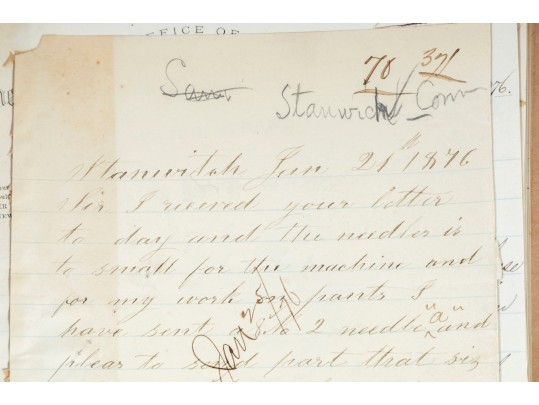 OFFICE OF
70 371
Sam
Stanwich Conn
76.
Stanwitch Jan 21th 1876
Sir I recved your letter
to day and the needles is
to small for the machine and
for my work on pants I
have sent a No 2 needle "a" and
pleas to send part that siz
Jan 25/76